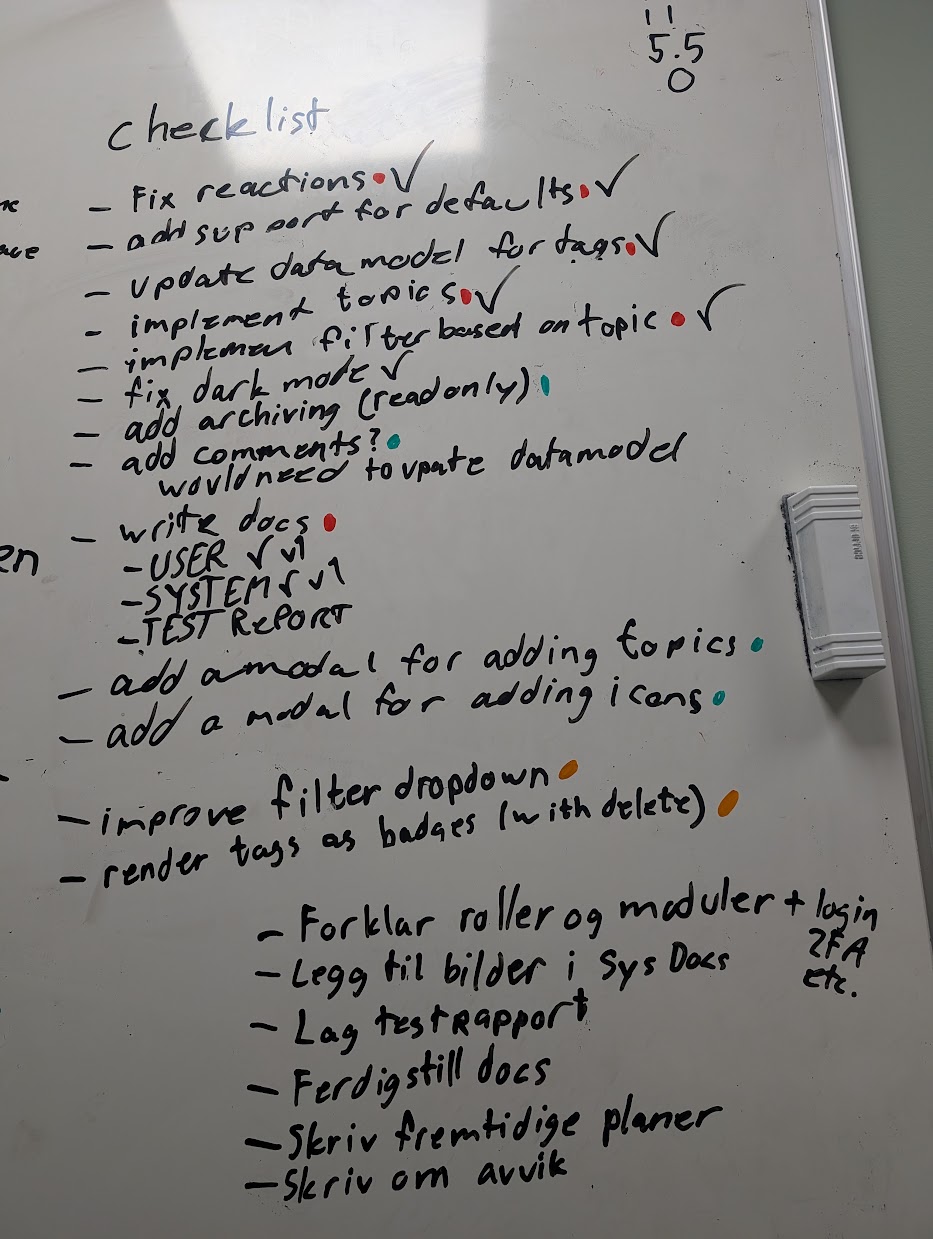 11
5.5
0
checklist
- Fix reactions ✓
- add support for defaults ✓
- update data model for tags ✓
- implement topics ✓
- implemen filter based on topic ✓
- fix dark mode ✓
- add archiving (readonly)
- add comments?
would need to upate datamodel
- write docs
- USER ✓ v1
- SYSTEM ✓ v1
- TEST REPORT
- add a modal for adding topics
- add a modal for adding icons
- improve filter dropdown
- render tags as badges (with delete)
- Forklar roller og moduler + login
2FA
etc.
- Legg til bilder i Sys Docs
- Lag testrapport
- Ferdigstill docs
- Skriv fremtidige planer
- Skriv om avvik
en